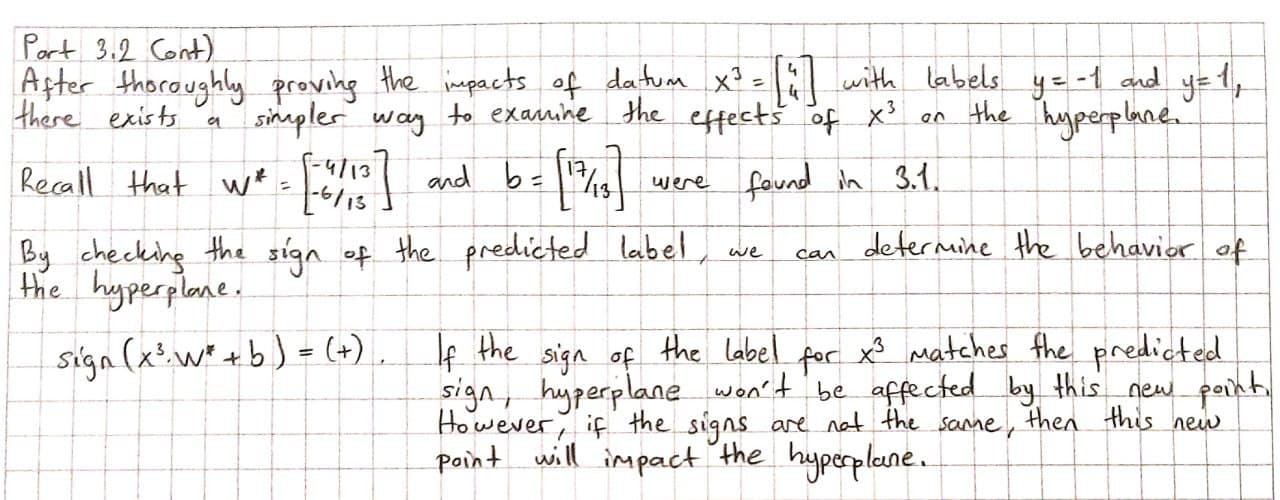 Part 3.2 Cont)
After thoroughly proving the impacts of datum x³ = [4 4] with labels y = -1 and y = 1,
there exists a simpler way to examine the effects of x³ on the hyperplane.
Recall that w* = [-4/13 -6/13] and b = [17/13] were found in 3.1.
By checking the sign of the predicted label, we can determine the behavior of
the hyperplane.
sign(x³·w* + b) = (+). If the sign of the label for x³ matches the predicted
sign, hyperplane won't be affected by this new point.
However, if the signs are not the same, then this new
point will impact the hyperplane.